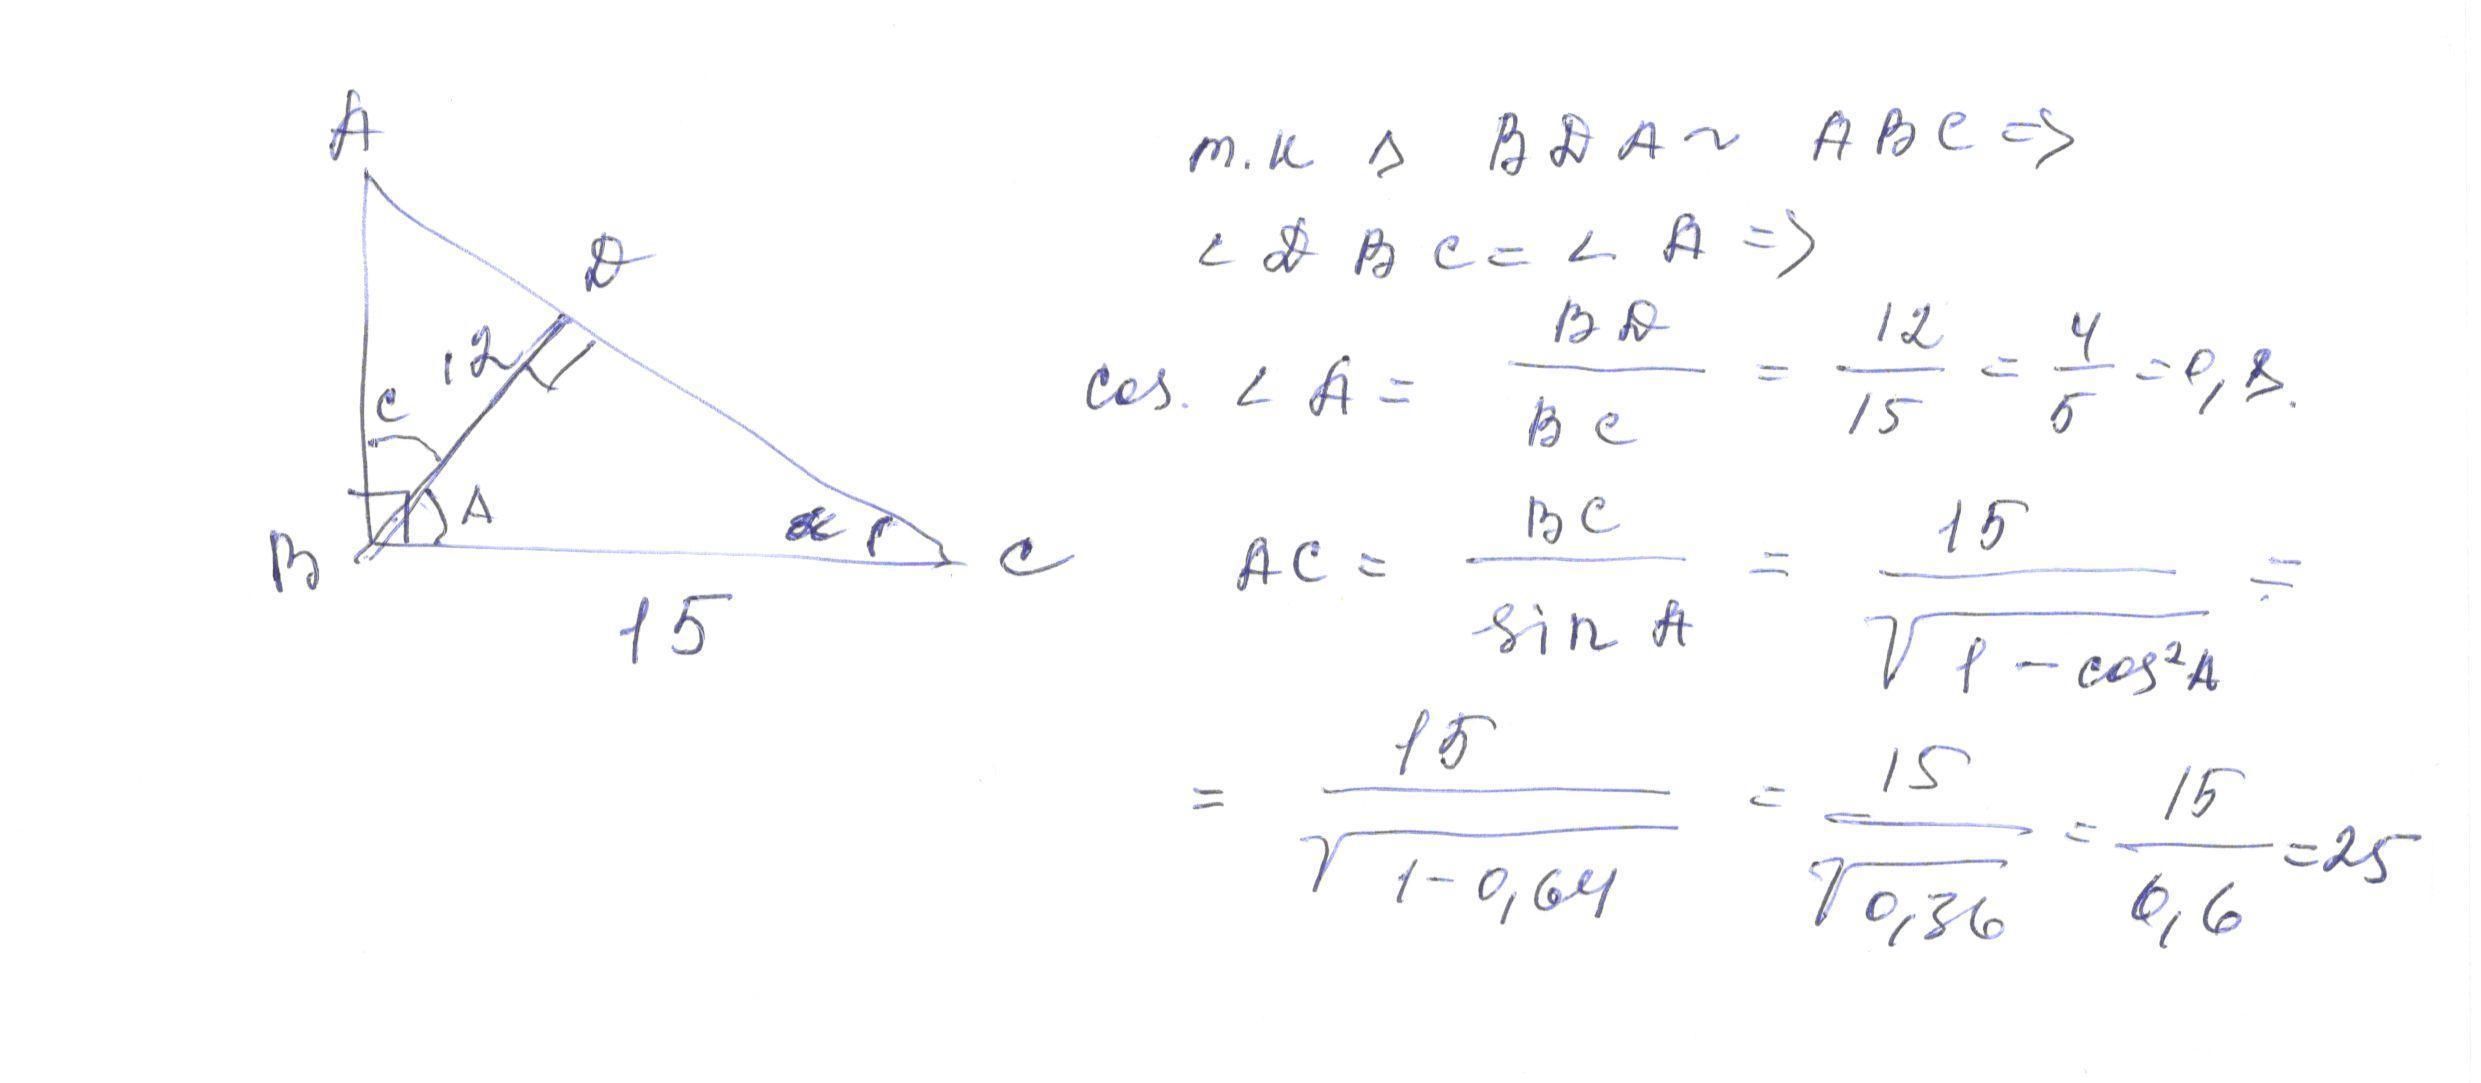 A
D
12
C
A
α
B
C
15
т.к Δ BDA ~ ABC =>
∠ DBC = ∠ A =>
cos. ∠ A = BD / BC = 12 / 15 = 4 / 5 = 0,8.
AC = BC / sin A = 15 / √(1 - cos²A) =
= 15 / √(1 - 0,64) = 15 / √0,36 = 15 / 0,6 = 25